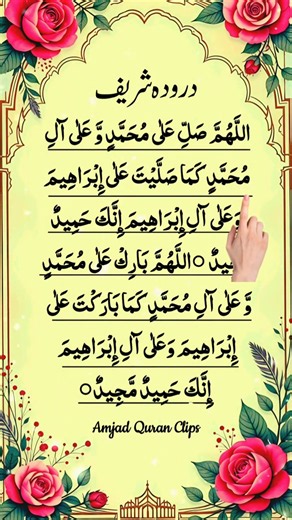 درودہ شریف
اللَّهُمَّ صَلِّ عَلٰى مُحَمَّدٍ وَّ عَلٰى آلِ
مُحَمَّدٍ كَمَا صَلَّيْتَ عَلٰى إِبْرَاهِيمَ
وَعَلٰى آلِ إِبْرَاهِيمَ إِنَّكَ حَمِيدٌ
اللَّهُمَّ بَارِكْ عَلٰى مُحَمَّدٍ
وَّ عَلٰى آلِ مُحَمَّدٍ كَمَا بَارَكْتَ عَلٰى
إِبْرَاهِيمَ وَعَلٰى آلِ إِبْرَاهِيمَ
إِنَّكَ حَمِيدٌ مَّجِيدٌ○
Amjad Quran Clips